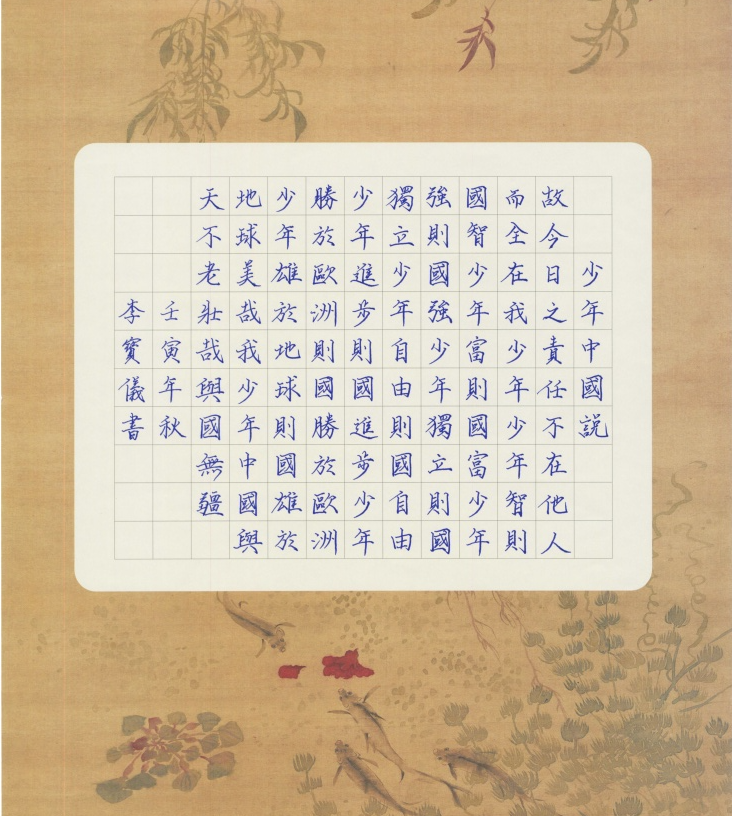 少年中國説
故今日之責任不在他人
而全在我少年少年智則
國智少年富則國富少年
強則國強少年獨立則國
獨立少年自由則國自由
少年進步則國進步少年
勝於歐洲則國勝於歐洲
少年雄於地球則國雄於
地球美哉我少年中國與
天不老壯哉與國無疆
壬寅年秋
李寶儀書